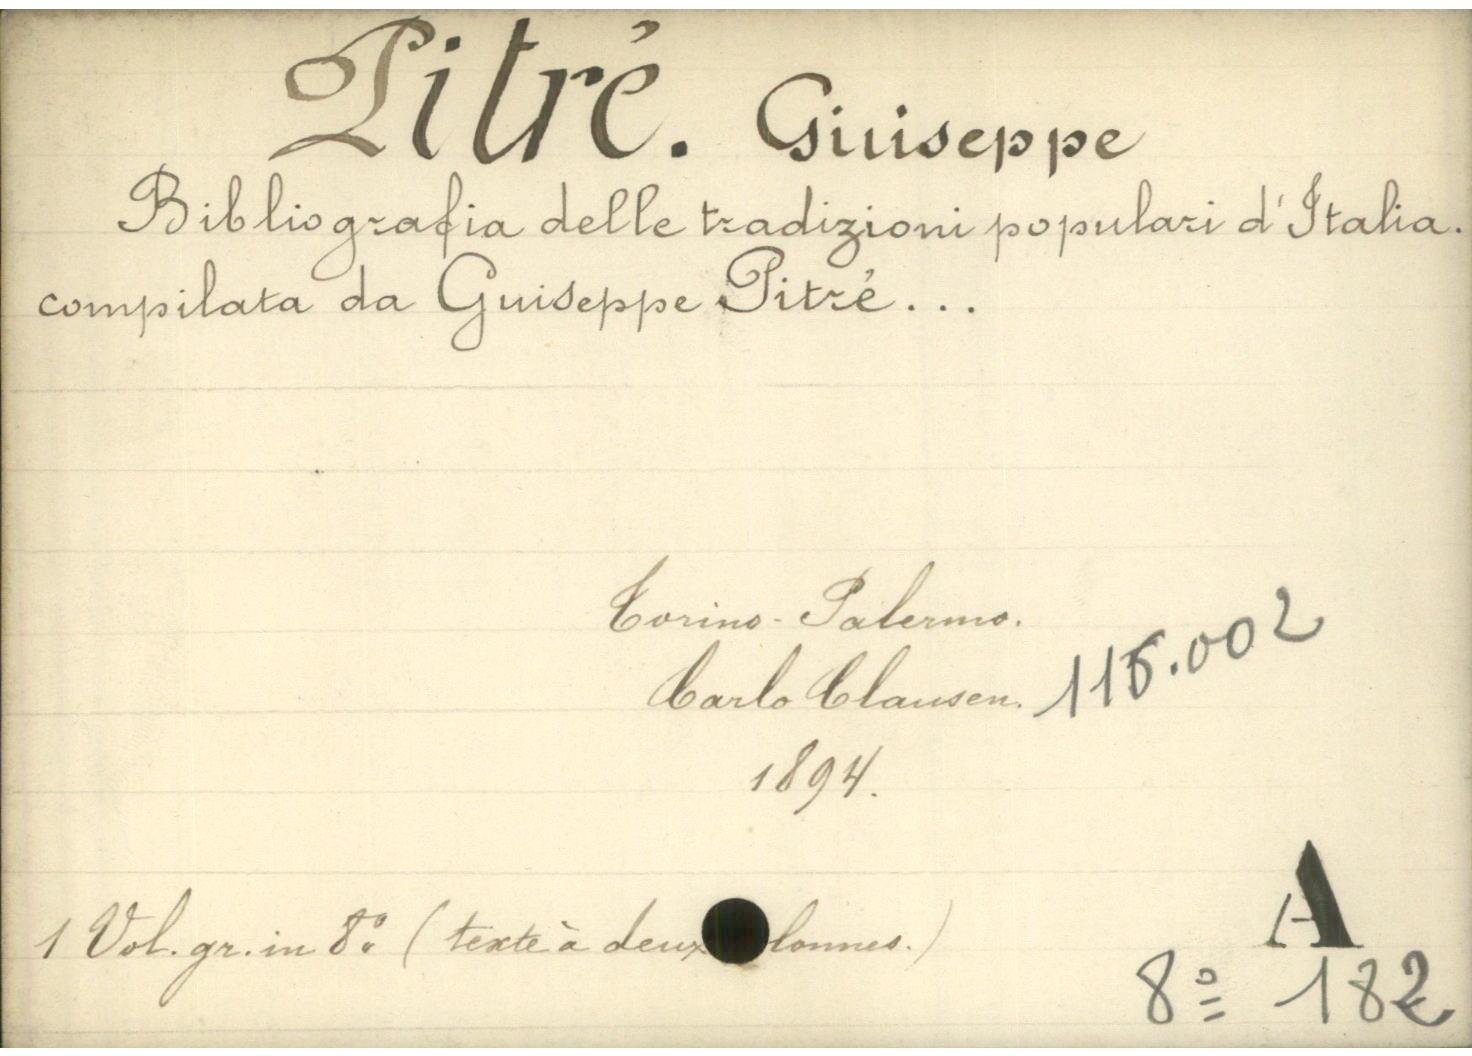 Pitré. Giuiseppe
Bibliografia delle tradizioni populari d'Italia.
compilata da Guiseppe Pitré...
Torino-Palermo.
Carlo Clausen.
115.002
1894.
1 Vol. gr. in 8° (texte à deux lonnes.)
A
8° 182